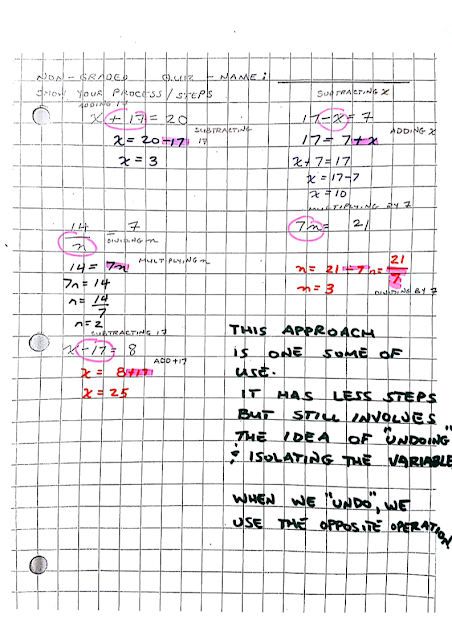 NON-GRADED QUIZ - NAME:
SHOW YOUR PROCESS/STEPS
ADDING 17
x + 17 = 20
SUBTRACTING
17
x = 20 - 17
x = 3
SUBTRACTING x
17 - x = 7
ADDING x
17 = 7 + x
x + 7 = 17
x = 17 - 7
x = 10
14/n = 7
DIVIDING n
MULTIPLYING n
14 = 7n
7n = 14
n = 14/7
n = 2
MULTIPLYING BY 7
7n = 21
n = 21 ÷ 7 n = 21/7
n = 3
DIVIDING BY 7
SUBTRACTING 17
x - 17 = 8
ADD +17
x = 8 + 17
x = 25
THIS APPROACH
IS ONE SOME OF
USE.
IT HAS LESS STEPS
BUT STILL INVOLVES
THE IDEA OF "UNDOING"
& ISOLATING THE VARIABLE
WHEN WE "UNDO", WE
USE THE OPPOSITE OPERATION